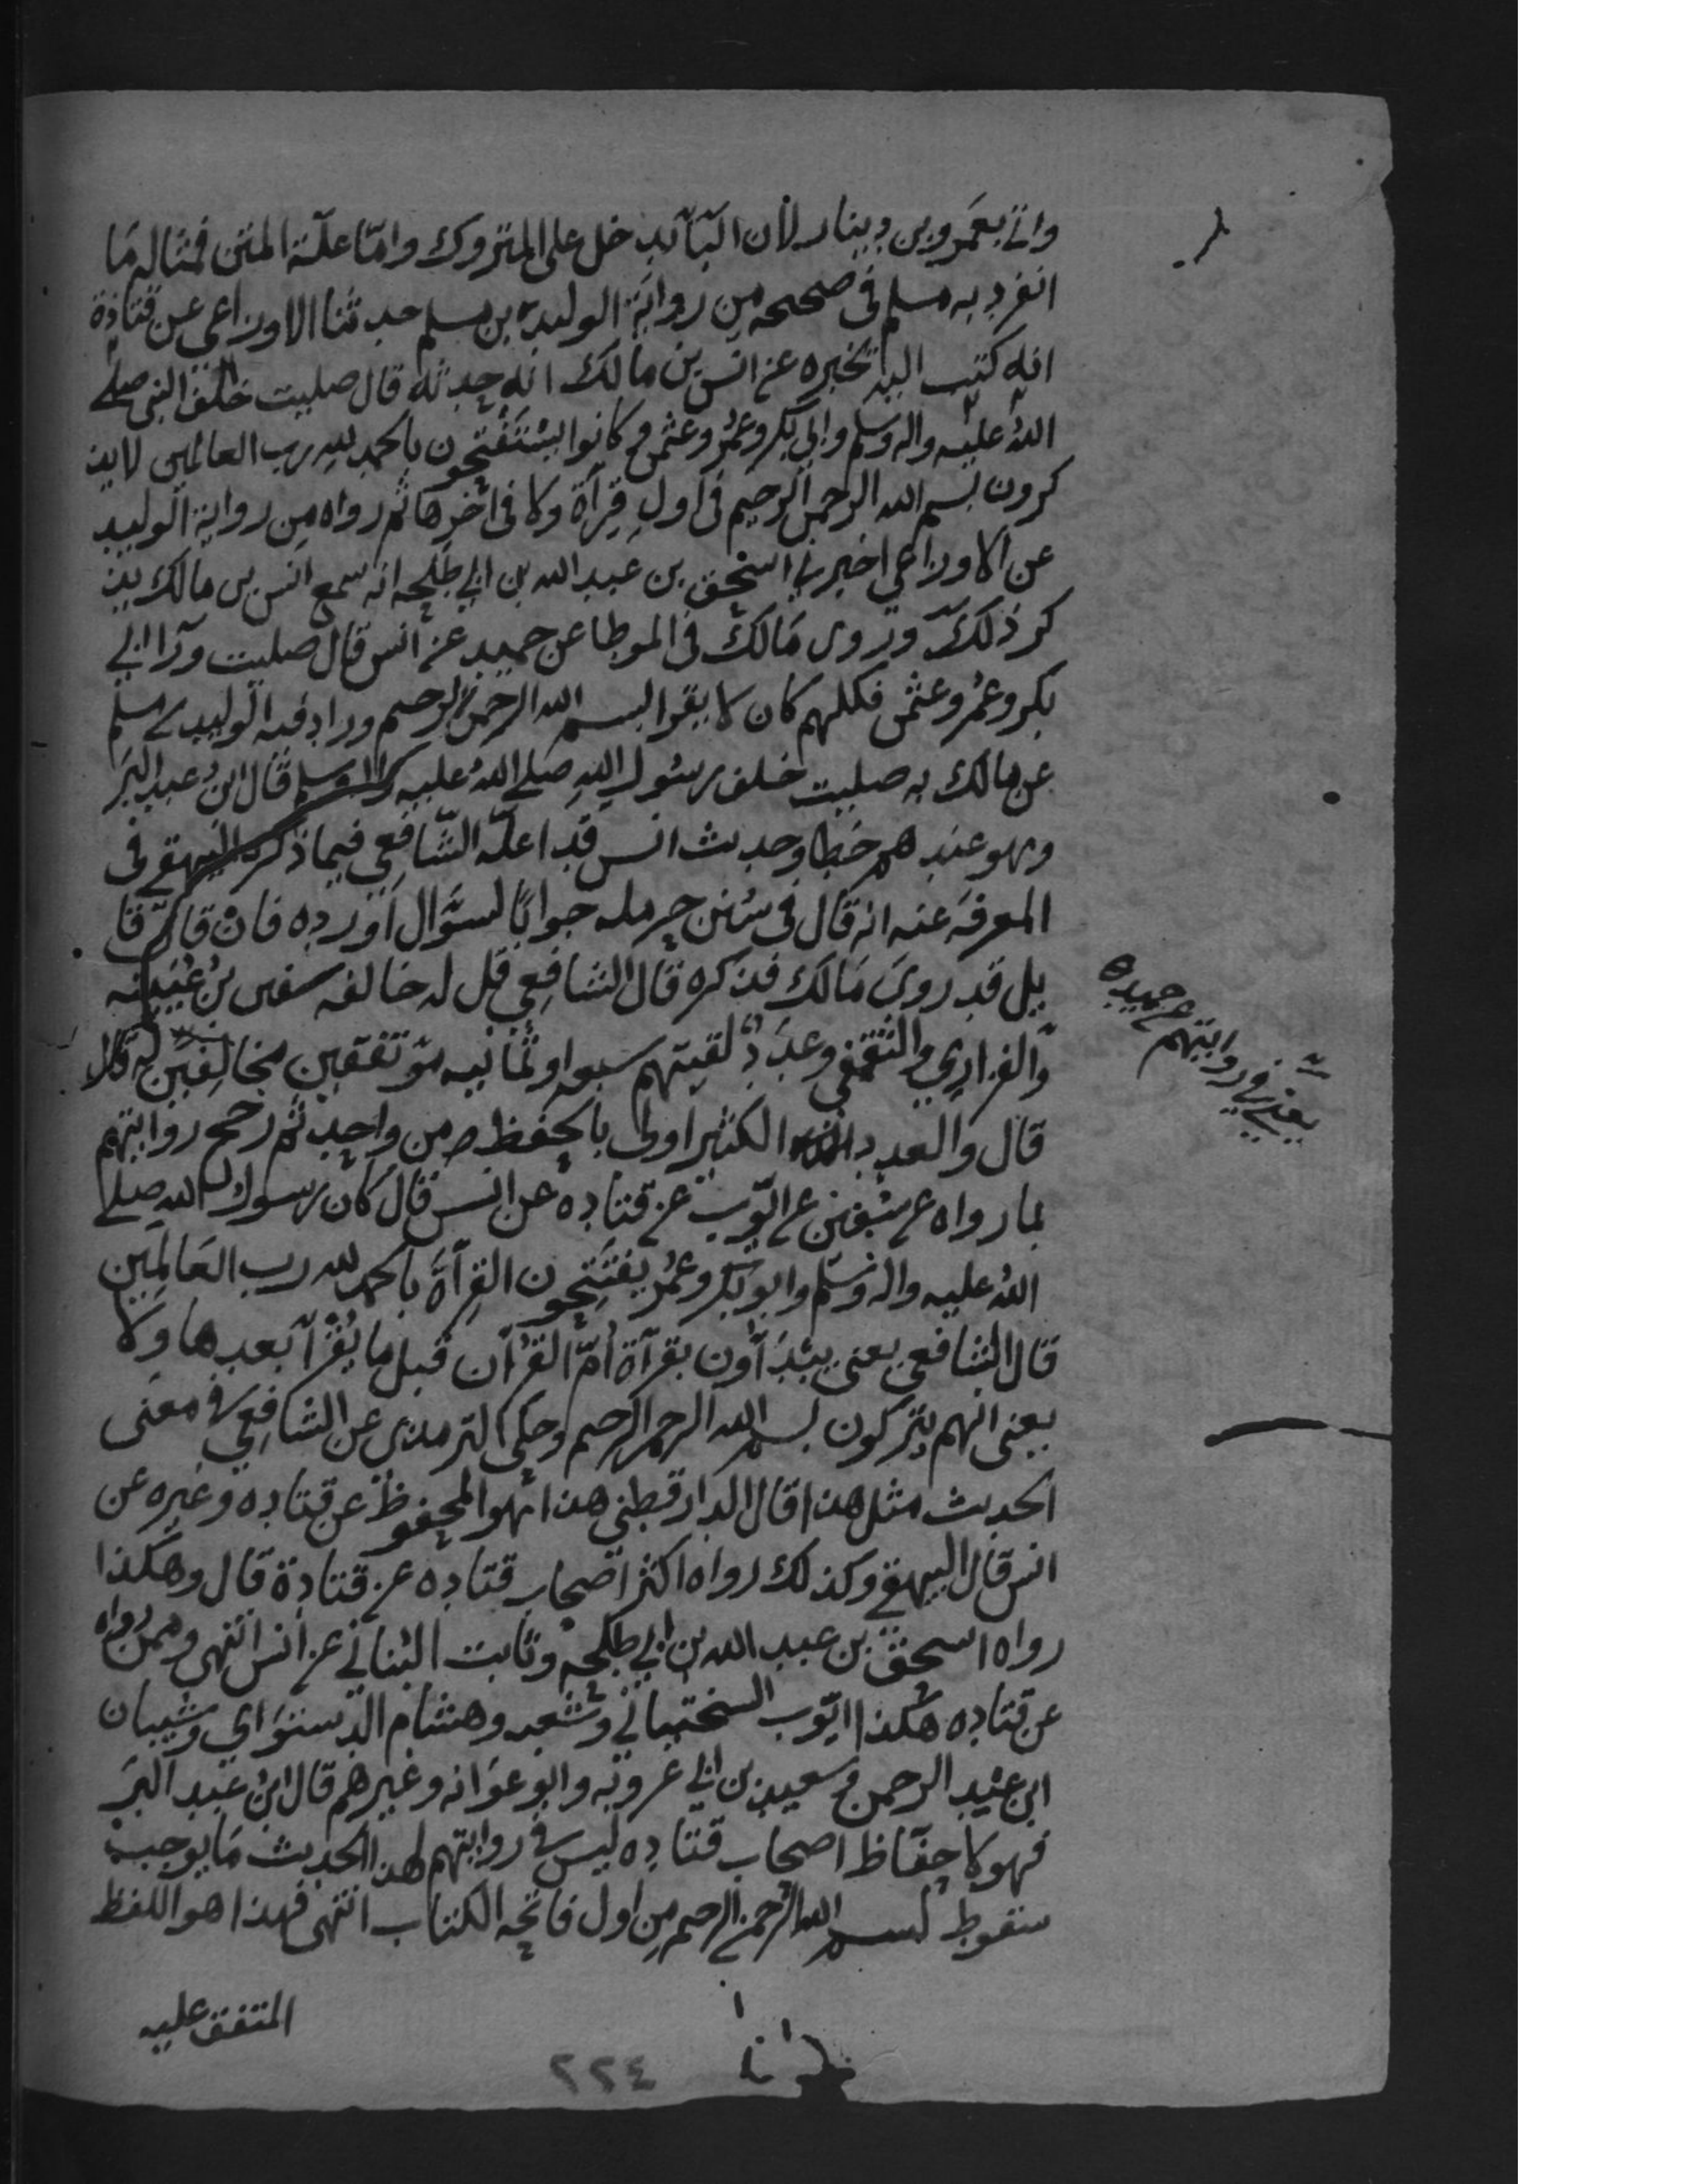 واتى بعمرو بن دينار لأن البآ تدخل على المتروك وامّا علّة المتن فمثاله مَا
انفرد به مسلم فى صحيحه مِن رواية الوليد بن مسلم حدثنا الاوزاعى عن قتادة
انه كتب اليه يخبره عن انس بن مالك انه حدثه قال صليت خلف النبى صلى
الله عليه واله وسلم وابى بكر وعمر وعثمن فكانوا يستفتحون بالحمد لله رب العالمين لا يذ
كرون بسم الله الرحمن الرحيم فى اول قرآة ولا فى اخرها ثم رواه مِن رواية الوليد
عن الاوزاعى اخبرنى اسحق بن عبد الله بن ابى طلحه انه سمع انس بن مالك يذ
كر ذلك وروى مَالك فى الموطا عن حميد عن انس قال صليت ورآ ابى
بكر وعمر وعثمن فكلهم كان لا يقرا بسم الله الرحمن الرحيم وزاد فيه الوليد بن مسلم
عن مالك به صليت خلف رسول الله صلى الله عليه واله وسلم قال ابن عبد البر
وهو عندهم خطا وحديث انس قد اعلّه الشّافعى فيما ذكره البيهقى فى
المعرفة عنه انه قال فى سنن حرمله جوابًا لسؤال أورده فان قال قا
يل قد روى مَالك فذكره قال الشافعى قل له خالفه سفين بن عيينه
والفزارى والثقفى وعدد لقيتهم سبعه او ثمانيه متفقين مخالفين له قال
قال والعدد الكثير اولى بالحفظ من واحد ثم رجح روايتهم
بما رواه عن سفين عن ايوب عن قتاده عن انس قال كان رسول الله صلى
الله عليه واله وسلم وابو بكر وعمر يفتتحون القرآة بالحمد لله رب العالمين
قال الشافعى يعنى يبدأون بقرآة أمّ القرأن قبل ما يقرأ بعدها ولا
يعنى انهم يتركون بسم الله الرحمن الرحيم وحكى الترمذى عن الشافعى فى معنى
الحديث مثل هذا قال الدارقطنى هذا هو المحفوظ عن قتاده وغيره عن
انس قال البيهقى وكذلك رواه اكثر اصحاب قتاده عن قتادة قال وهكذا
رواه اسحق بن عبد الله بن ابى طلحه وثابت البنانى عن انس انتهى وممن رواه
عن قتاده هكذا ايّوب السختيانى وشعبه وهشام الدستوَاى وشيبان
ابن عبد الرحمن وسعيد بن ابى عروبه وابو عوَانه وغيرهم قال ابن عبد البر
فهولا حفّاظ اصحاب قتاده ليس فى روايتهم لهذا الحديث مَا يوجب
سقوط بسم الله الرحمن الرحيم مِن اول فاتحه الكتاب انتهى فهذا هو اللفظ
المتفق عليه
يعنى فى روايتهم عن حميد
٢٢٤